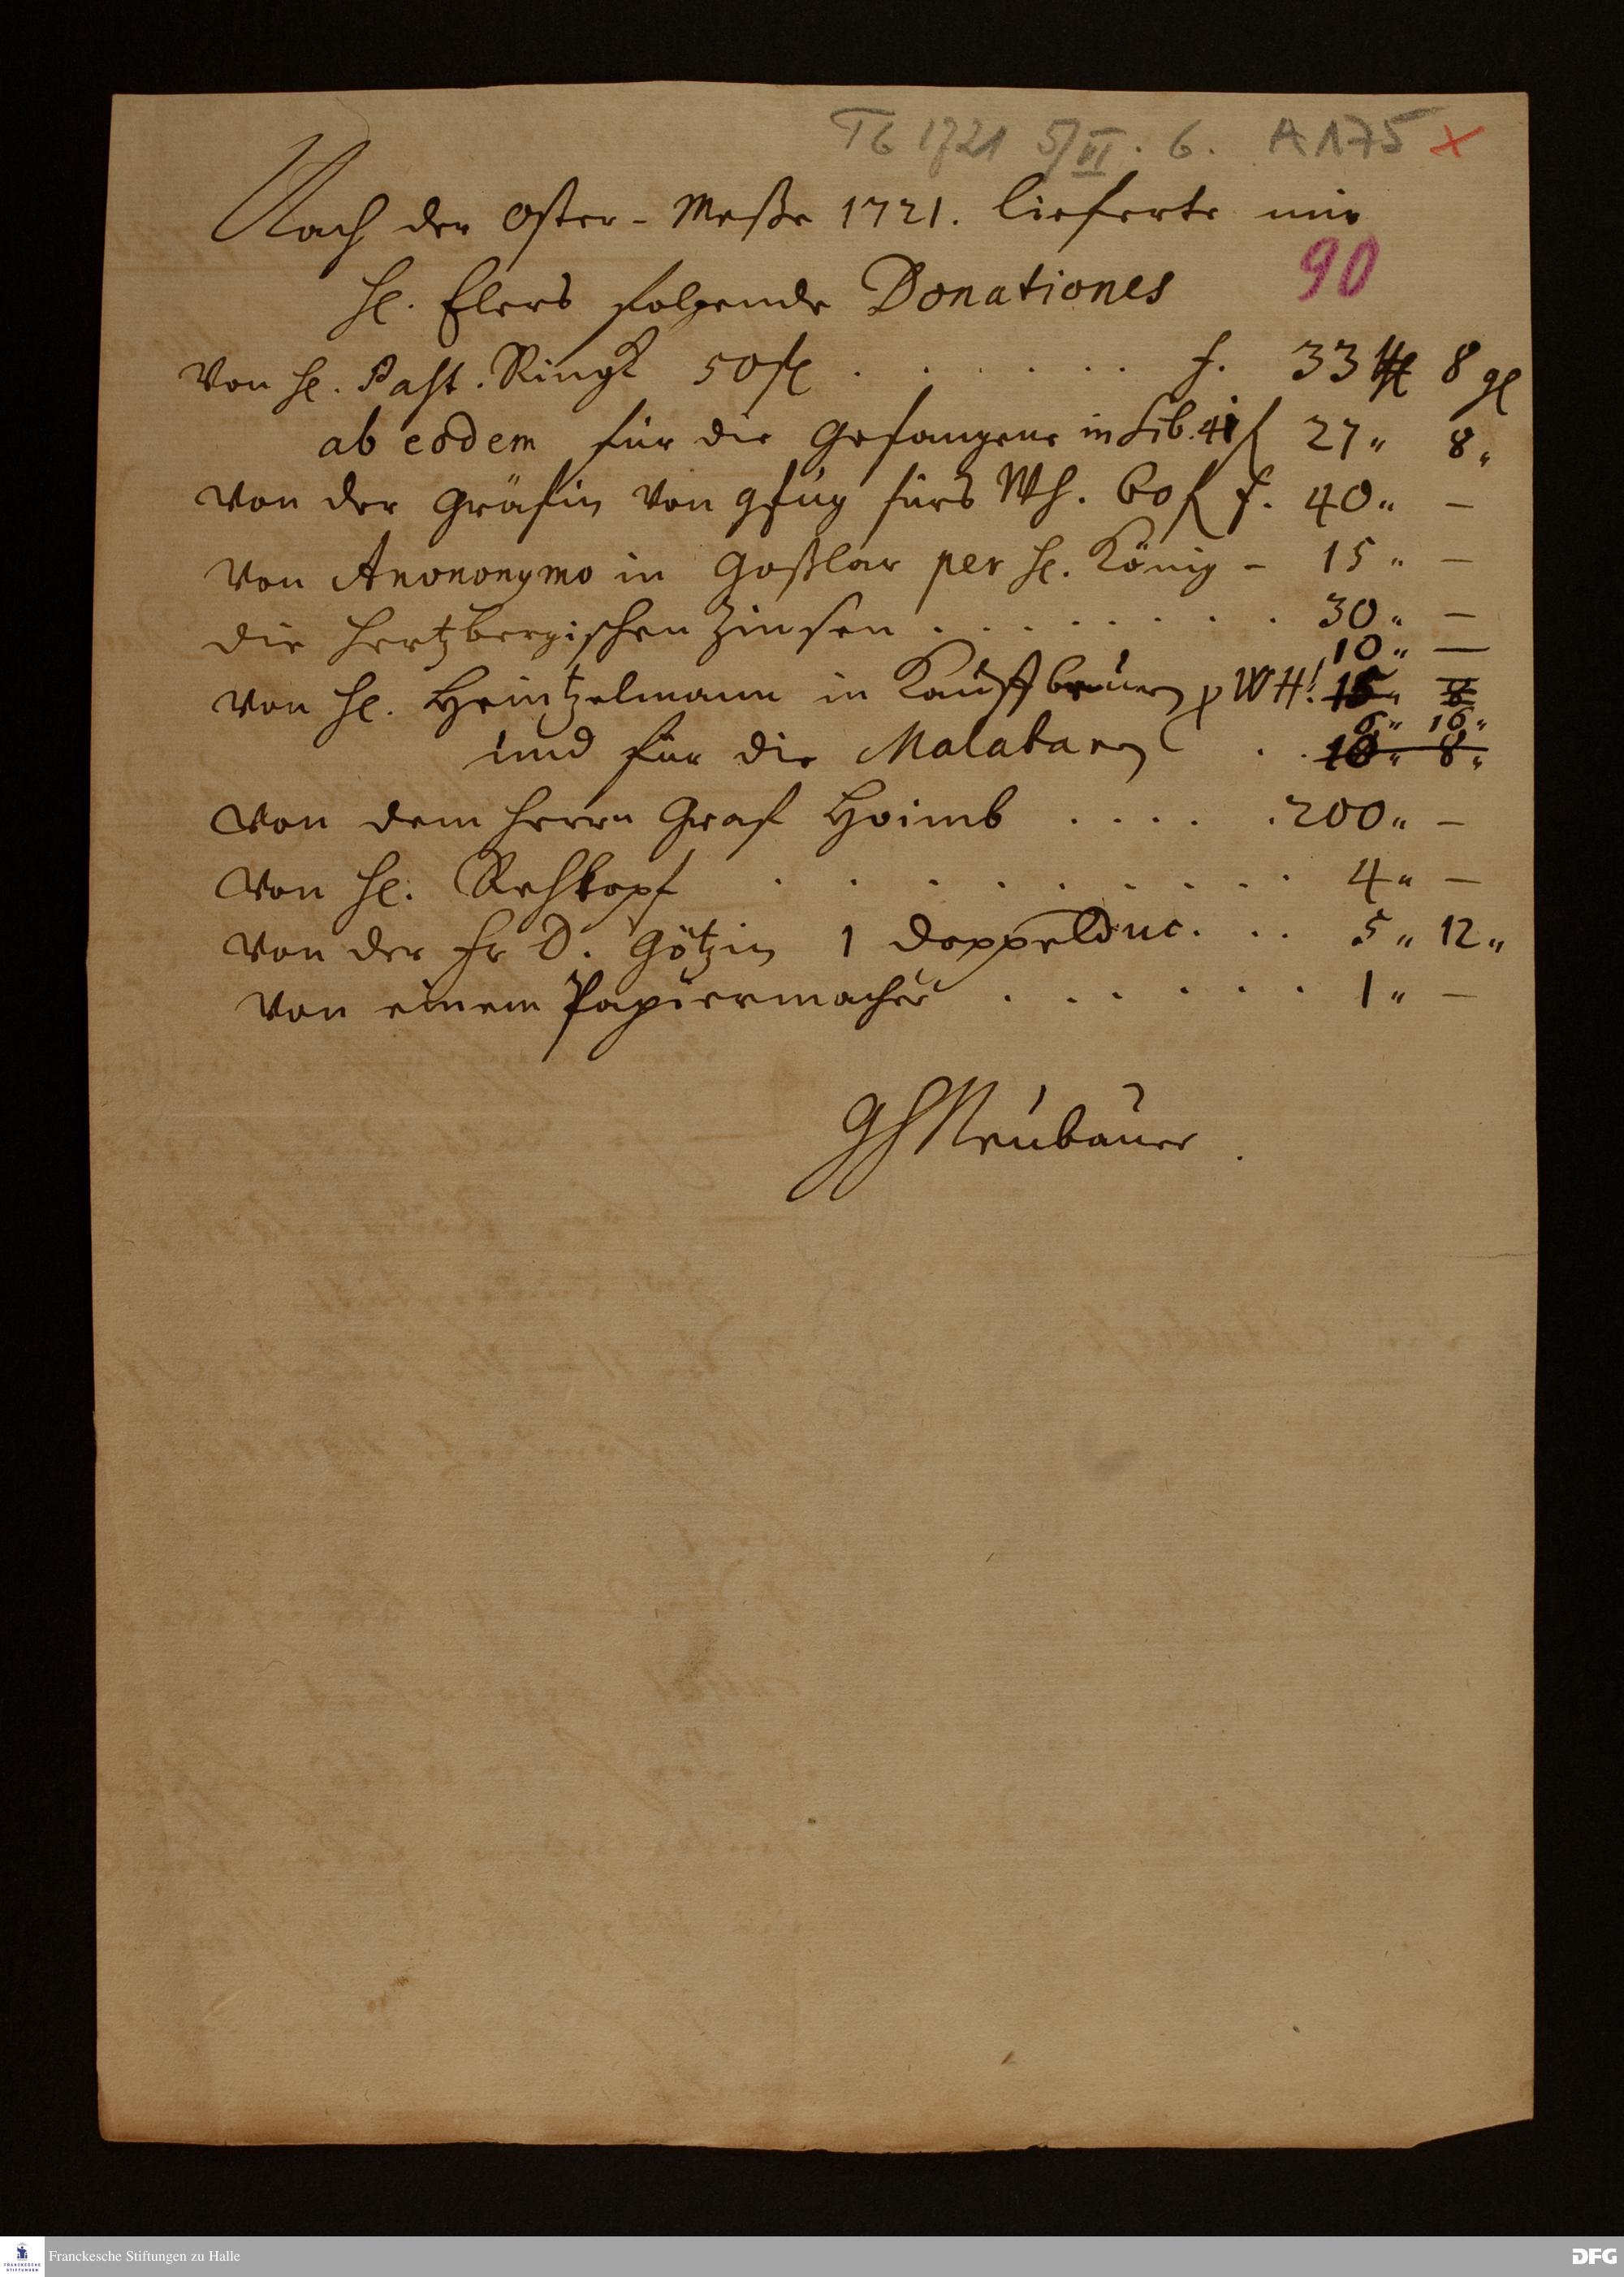 Tb 1721 5/VI. 6. A 175 x
Nach der Oster-Meße 1721. lieferte mir
90
H. Elers folgende Donationes
Von H. Past. Ringk 50 fl . . . . . . f. 33 rthl 8 gl
ab eodem für die Gefangene in Sib. 41 f 27 " 8 "
von der Gräfin von fürs Wh. 60 f f. 40 " —
Von Anononymo in Goßlar per H. König - 15 " —
die Hertzbergischen Zinsen . . . . . . . . 30 " —
10 " —
von H. Heintzelmann in Kauffbeuren p WH.
6 " 16 "
und für die Malabaren . . 8 "
Von dem Herrn Graf Hoimb . . . . . 200 " —
Von H. Rehkopf . . . . . . . . . . 4 " —
Von der Fr D. Götzin 1 Doppelduc. . . 5 " 12 "
Von einem Papiermacher . . . . . . 1 " —
GHNeubauer.
Franckesche Stiftungen zu Halle
FRANCKESCHE STIFTUNGEN
DFG